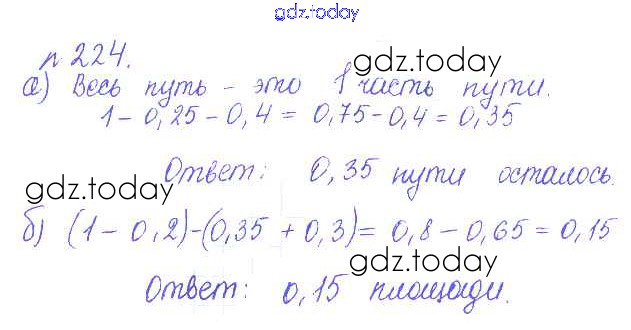 gdz.today
n 224.
gdz.today
а) Весь путь - это 1 часть пути.
1 - 0,25 - 0,4 = 0,75 - 0,4 = 0,35
Ответ: 0,35 пути осталось.
gdz.today
б) (1 - 0,2) - (0,35 + 0,3) = 0,8 - 0,65 = 0,15
gdz.today
Ответ: 0,15 площади.